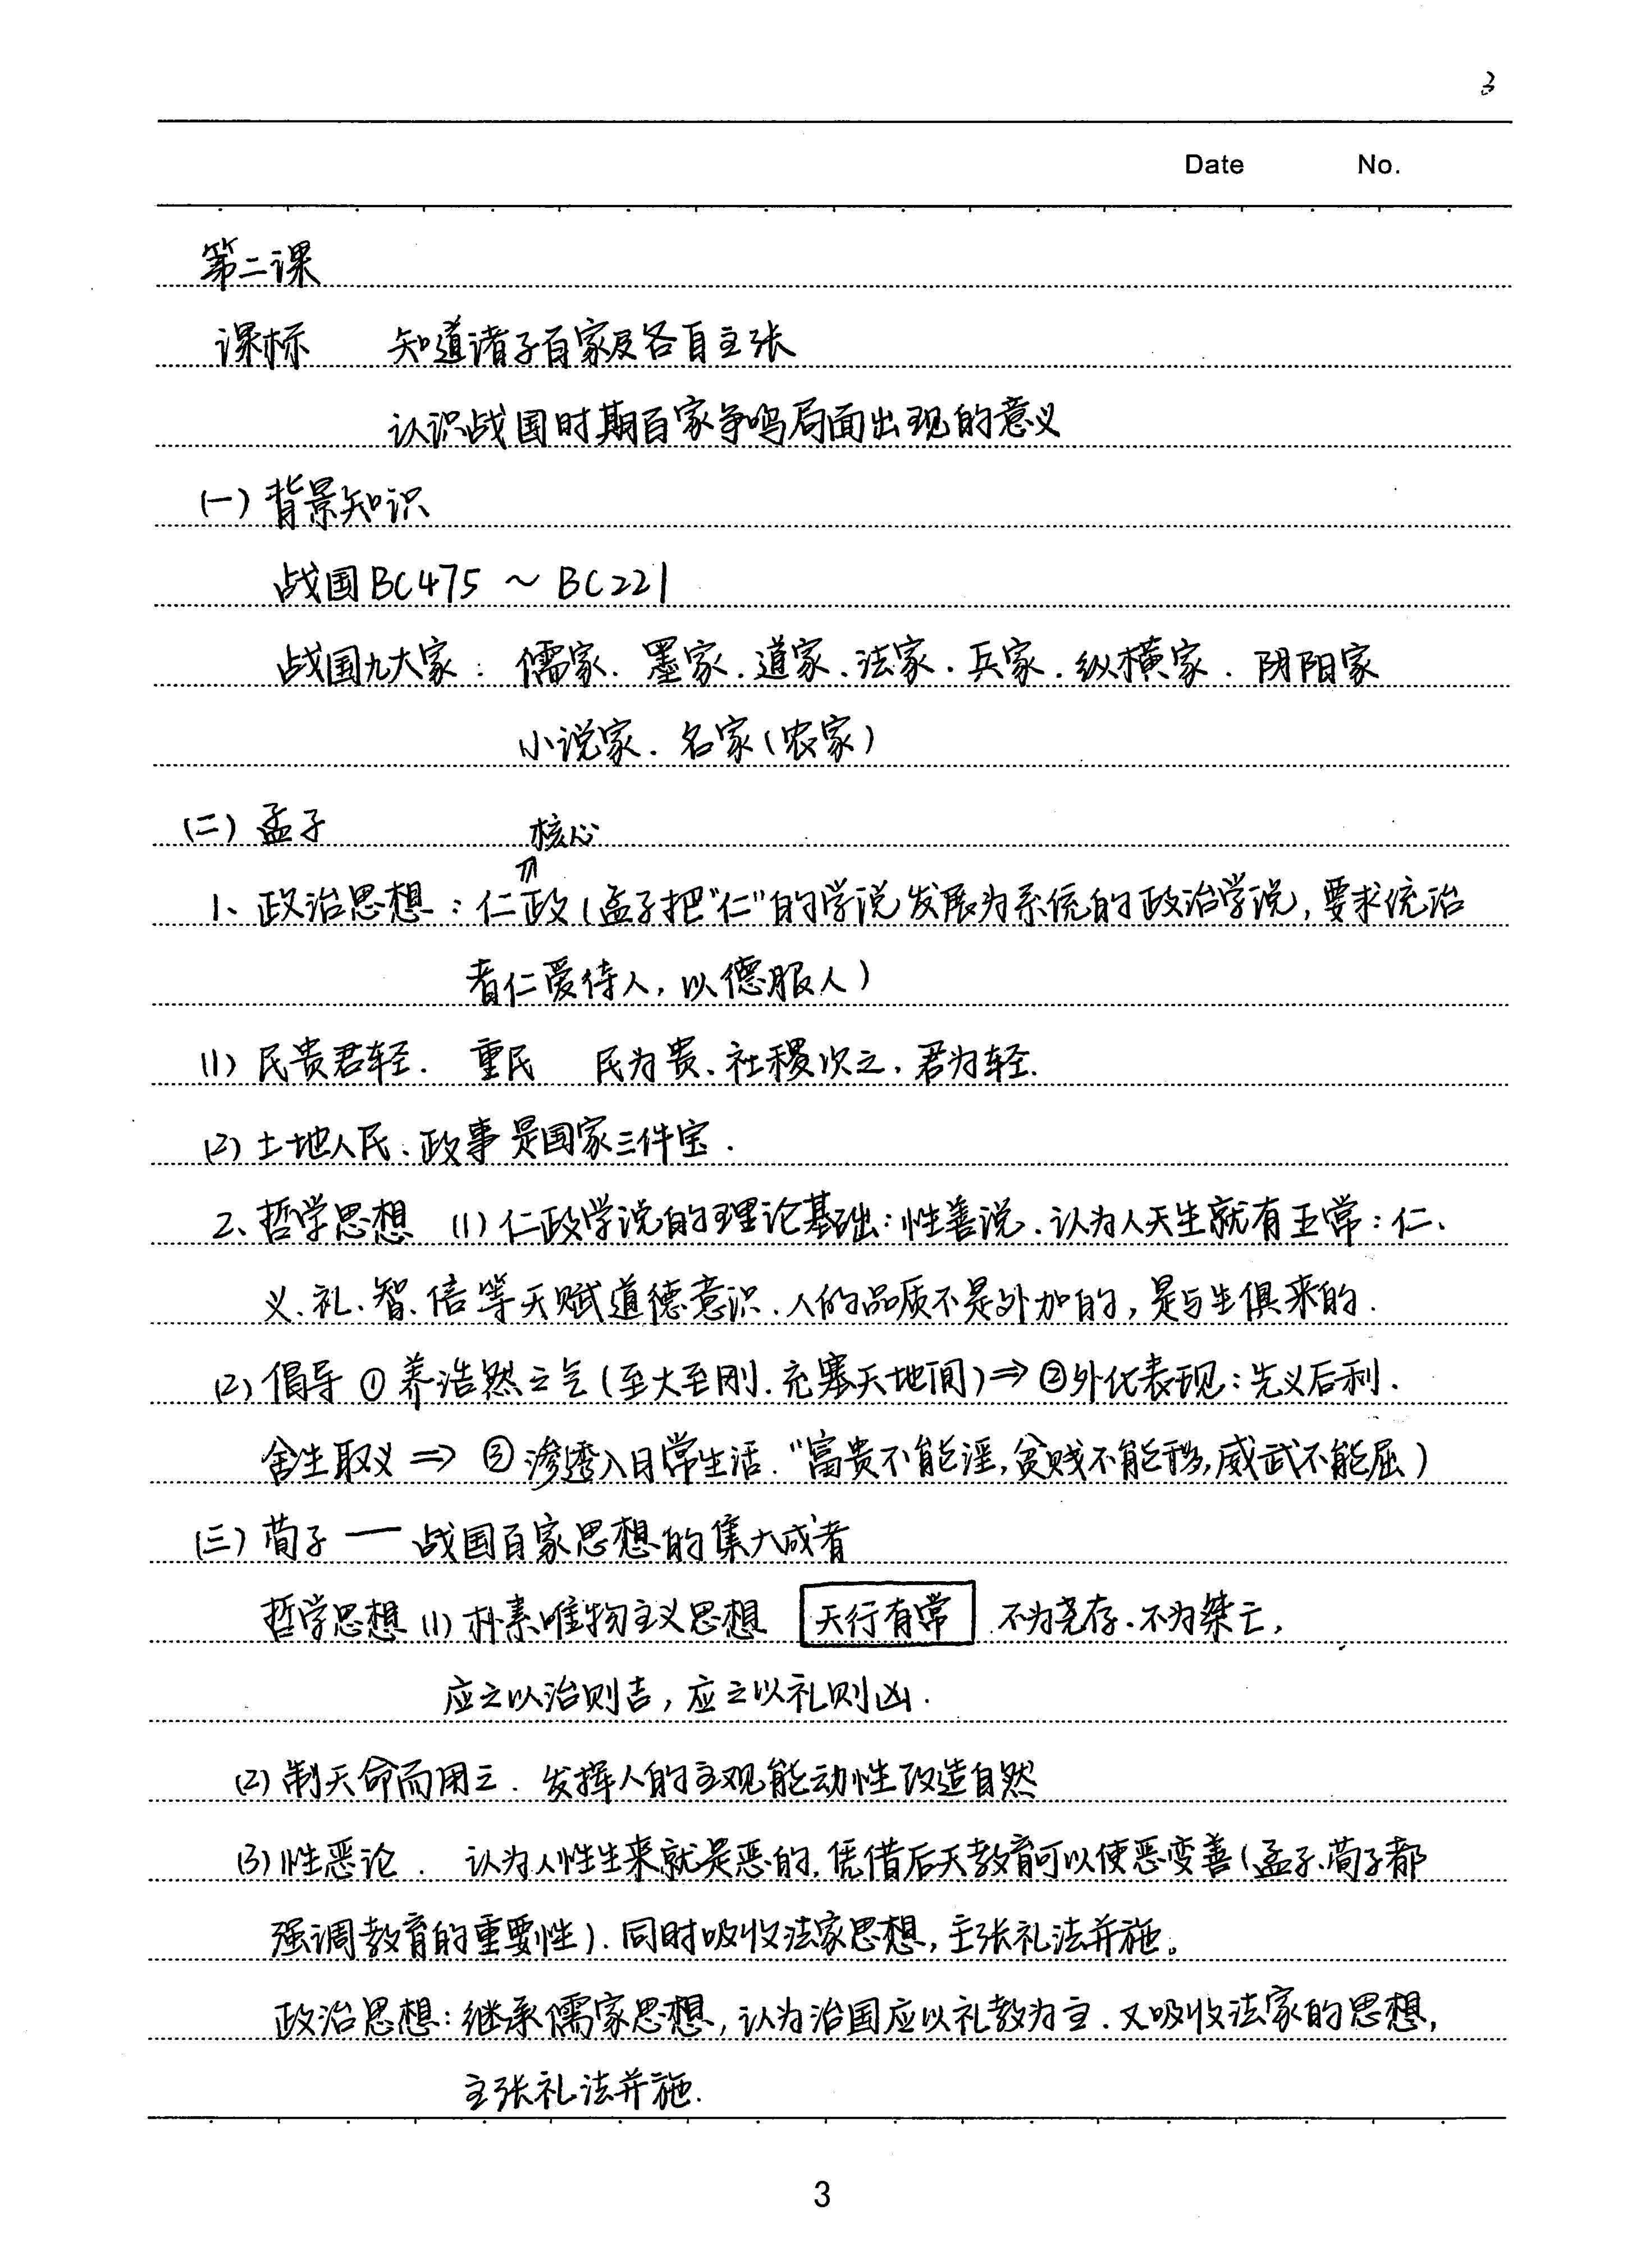 3
Date No.
第二课
课标 知道诸子百家及各自主张
认识战国时期百家争鸣局面出现的意义
(一) 背景知识
战国BC475 ~ BC221
战国九大家: 儒家. 墨家. 道家. 法家. 兵家. 纵横家. 阴阳家
小说家. 名家(农家)
(二) 孟子
核心
⇑
1、政治思想: 仁政(孟子把"仁"的学说发展为系统的政治学说, 要求统治
者仁爱待人, 以德服人)
(1) 民贵君轻. 重民 民为贵、社稷次之, 君为轻.
(2) 土地人民、政事是国家三件宝.
2、哲学思想 (1) 仁政学说的理论基础: 性善说. 认为人天生就有五常: 仁、
义、礼、智、信等天赋道德意识. 人的品质不是外加的, 是与生俱来的.
(2) 倡导 ① 养浩然之气(至大至刚. 充塞天地间) ⇒ ②外化表现: 先义后利.
舍生取义 ⇒ ③ 渗透入日常生活. "富贵不能淫, 贫贱不能移, 威武不能屈)
(三) 荀子 — 战国百家思想的集大成者
哲学思想 (1) 朴素唯物主义思想 天行有常 不为尧存. 不为桀亡,
应之以治则吉, 应之以礼则凶.
(2) 制天命而用之. 发挥人的主观能动性改造自然
(3) 性恶论. 认为人性生来就是恶的, 凭借后天教育可以使恶变善(孟子、荀子都
强调教育的重要性). 同时吸收法家思想, 主张礼法并施。
政治思想: 继承儒家思想, 认为治国应以礼教为主. 又吸收法家的思想,
主张礼法并施.
3